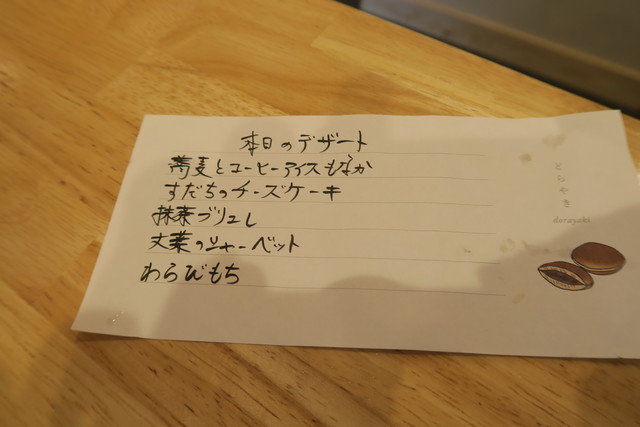 本日のデザート
蕎麦とコーヒーアイスもなか
すだちのチーズケーキ
抹茶ブリュレ
文葉のシャーベット
わらびもち
どらやき
dorayaki